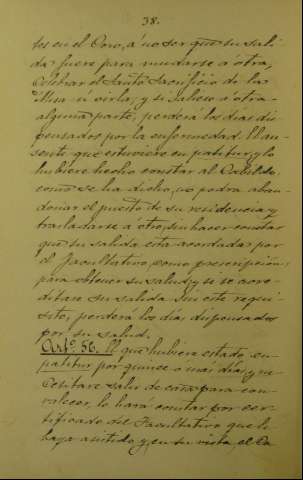 38.
tes en el Coro, á no ser que su sali
da fuere para mudarse á otra,
celebrar el Santo Sacrificio de la
Misa ú oirla; y si saliere á otra
alguna parte, perderá los dias dis
pensados por la enfermedad. El au
sente que estuviere en patitur, y lo
hubiere hecho constar al Cabildo,
como se ha dicho, no podrá aban
donar el puesto de su residencia y
trasladarse á otro, sin hacer constar
que su salida está acordada por
el facultativo, como prescripcion,
para obtener su salud; y si se acre
ditare su salida sin este requi
sito, perderá los dias dispensados
por su salud.
Artº. 56. El que hubiere estado en
patitur por quince ó más dias, y ne
cesitare salir de casa para con
valecer, lo hará constar por cer
tificado del Facultativo que le
haya asistido y, en su vista, el Ca